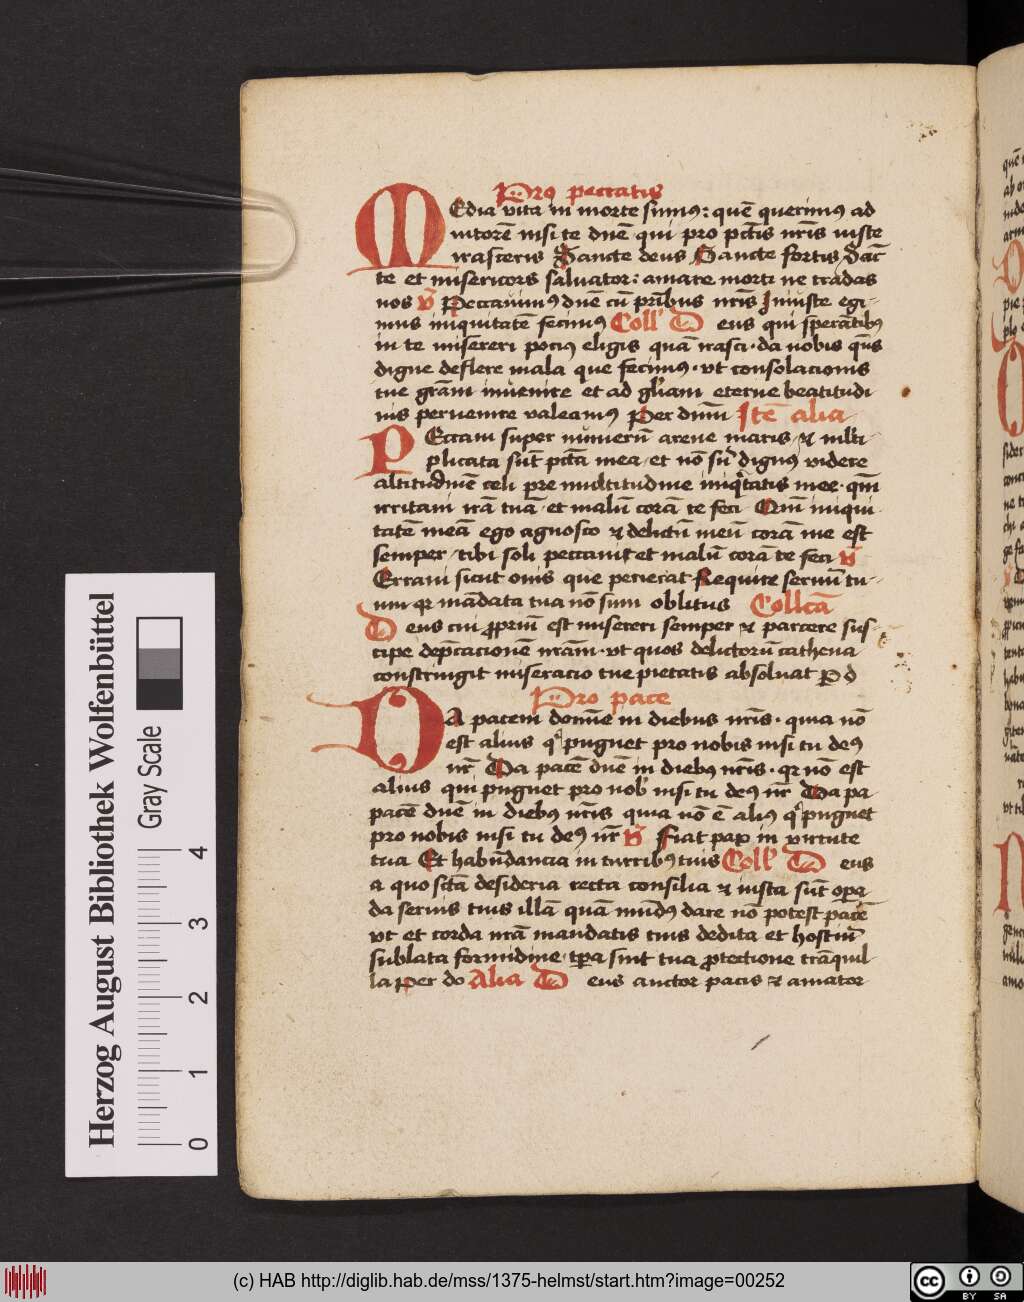 Pro peccatis
MEdia vita in morte sumus: quē querimus ad
iutorē nisi te dnē qui pro pctis nris iuste
irasceris Sancte deus Sancte fortis Sāc
te et misericors saluator: amare morti ne tradas
nos v̄ Peccauimus dnē cū pribus nris Iniuste egi-
mus iniquitatē fecimus Coll' Deus qui sperātibus
in te misereri pocius eligis quā irasci · da nobis qus
digne deflere mala que fecimus · vt consolacionis
tue grām inuenire et ad gliam eterne beatitudi
nis peruenire valeamus Per dnm Itē alia
PEccaui super numerū arene maris et mlti-
plicata sūt pcta mea · et nō sū dignus videre
altitudinē celi pre multitudine iniqtatis mee · qm
irritaui irā tuā · et malū corā te feci Qm iniqui
tatē meā ego agnosco et delictū meū corā me est
semper · tibi soli peccaui et malū corā te feci v̄
Erraui sicut ouis que perierat Require seruū tu-
um qr mādata tua nō sum oblitus Collcā
Deus cui ppriū est misereri semper et parcere sus
cipe depcacionē nrām · vt quos delictorū cathena
constringit miseracio tue pietatis absoluat P d
Pro pace
DA pacem domīe in diebus nris · quia nō
est alius q pugnet pro nobis nisi tu deus
nr Da pacē dnē in diebus nris · qr nō est
alius qui pugnet pro nob nisi tu deus nr Da pa
pacē dnē in diebus nris quia nō ē alius q pugnet
pro nobis nisi tu deus nr v̄ Fiat pax in virtute
tua Et habūdancia in turribus tuis Coll' Deus
a quo scta desideria recta consilia et iusta sūt opa
da seruis tuis illā quā mūdus dare nō potest pacē
vt et corda nrā mandatis tuis dedita et hostiū
sublata formidine · tpa sint tua ptectione trāquil-
la Per do Alia Deus auctor pacis et amator
Herzog August Bibliothek Wolfenbüttel
Gray Scale
0 1 2 3 4
(c) HAB http://diglib.hab.de/mss/1375-helmst/start.htm?image=00252
cc BY SA